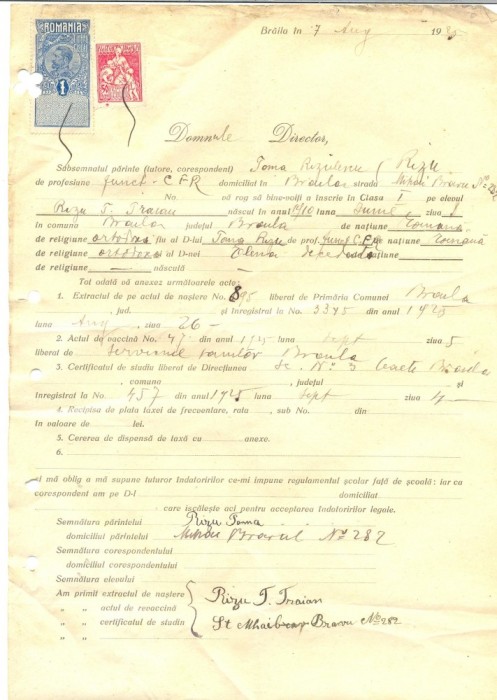 ROMANIA
1
Brăila în 7 Aug 1925
Domnule Director,
Subsemnatul părinte (tutore, corespondent) Toma Rizulescu / Rizu
de profesiane funct. CFR domiciliat în Braila strada Mihai Bravu No 282
No. vă rog să bine-voiți a înscrie în Clasa I pe elevul
Rizu T. Traian născut în anul 1910 luna Iunie, ziua
în comuna Braila județul Braila de națiune Romană
de religiune ortodox fiu al D-lui Toma Rizu de prof. funct. CFR de națiune Romană
de religiune ortodoxa al D-nei Elena
de religiune — născută —
Tot odată vă anexez următoarele acte:
1. Extractul de pe actul de naștere No. 895 liberat de Primăria Comunei Braila
, jud. și înregistrat la No. 3345 din anul 1925
luna Aug, ziua 26 -
2. Actul de vaccină No. 47 din anul 1925 luna Sept ziua 5
liberat de Serviciul sanitar Braila
3. Certificatul de studiu liberat de Direcțiunea Sc. No 3 Baeti Braila
, comuna , județul și
înregistrat la No. 457 din anul 1925 luna Sept ziua 4 -
4. Recipisa de plata taxei de frecventare, rata , sub No. din
în valoare de lei.
5. Cererea de dispensă de taxă cu anexe.
6.
și mă oblig a mă supune tuturor îndatoririlor ce-mi impune regulamentul școlar față de școală: iar ca
corespondent am pe D-l domiciliat
care iscălește aci pentru acceptarea îndatoririlor legale.
Semnătura părintelui Rizu Toma
domiciliul părintelui Mihai Bravul No 282
Semnătura corespondentului
domiciliul corespondentului
Semnătura elevului
Am primit extractul de naștere
„ „ actul de revaccină Rizu T. Traian
„ „ certificatul de studiu St Mhaibeap Bravu No 282
„ „